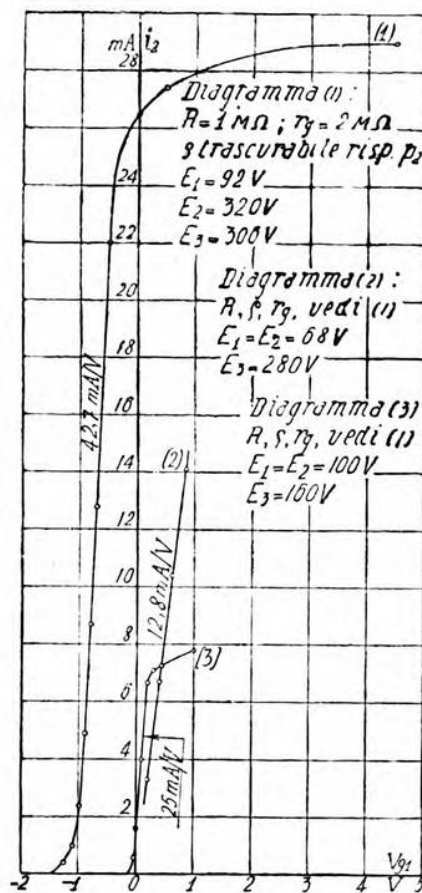 mA i₂
28
(1)
Diagramma (1) :
R=1 MΩ ; rg=2 MΩ
ρ trascurabile risp. ρ₂
E₁=92 V
E₂=320V
E₃=300V
24
22
Diagramma (2) :
R, ρ, rg, vedi (1)
E₁=E₂=68V
E₃=280V
20
18
Diagramma (3)
R, ρ, rg, vedi (1)
E₁=E₂=100V
E₃=160V
16
42,7 mA/V
(2)
14
12
12,8 mA/V
10
8
(3)
6
4
25 mA/V
2
Vg₁
-2 -1 0 1 2 3 4 V 5